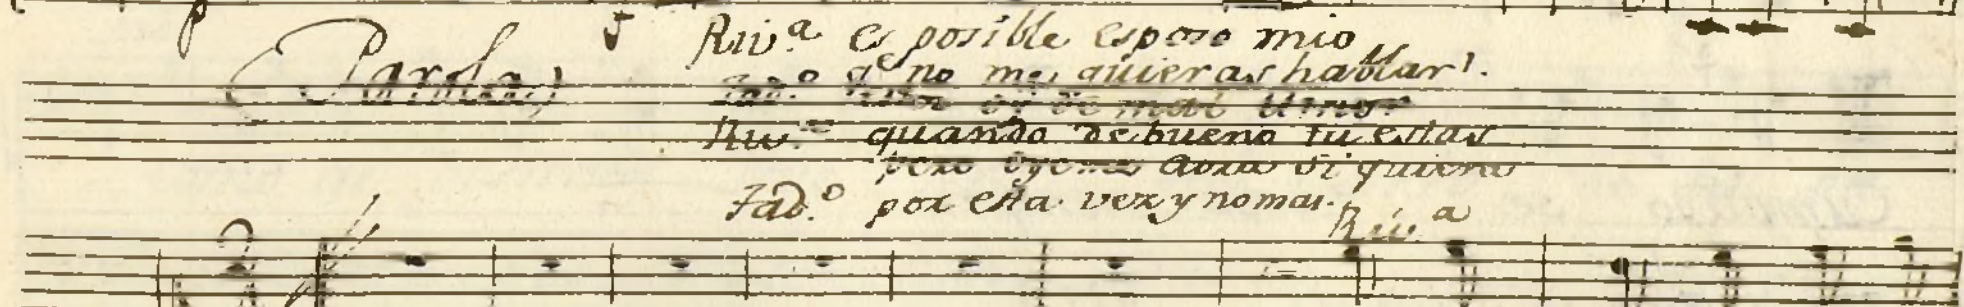 Riv.ª es posible esposo mio
(Parola) qᵉ no me quieras hablar!
Tad.º
Riv.ª quando de bueno tu estas
pero oyeme aora si quiero
Tad.º por esta vez y no mas.
Riv.ª